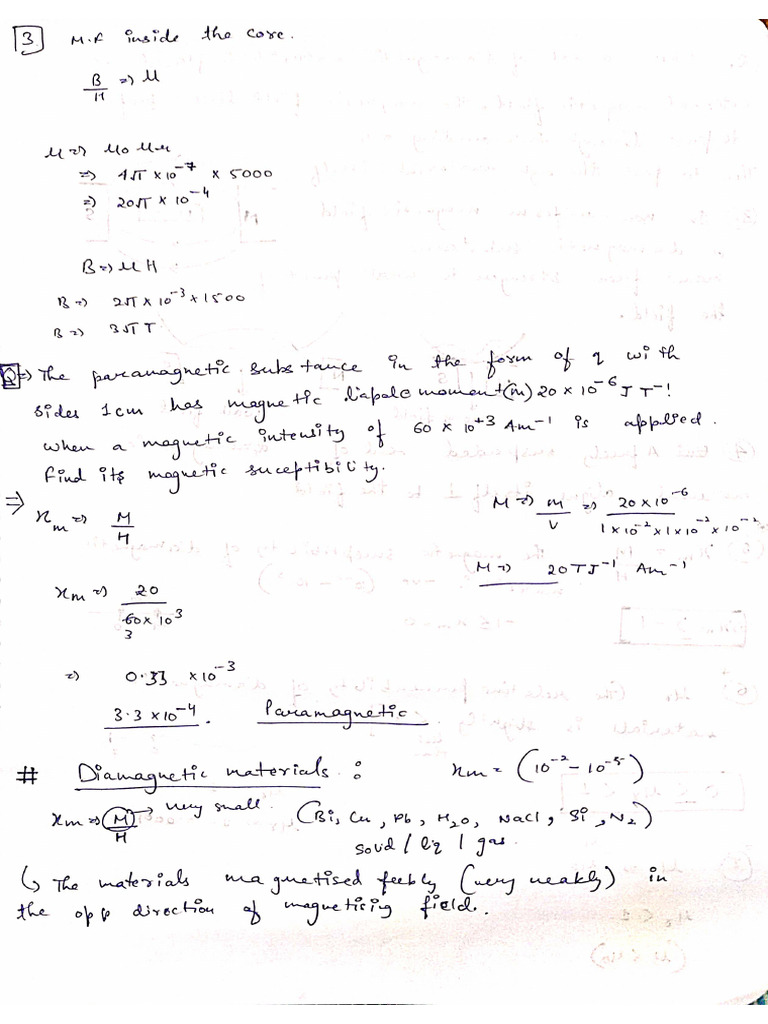 3. M.F inside the core.
B/H => μ
μ => μ0 μr
=> 4π × 10^-7 × 5000
=> 20π × 10^-4
B => μ H.
B => 2π × 10^-3 × 1500
B => 3π T
Q => The paramagnetic substance in the form of q with
sides 1cm has magnetic diapole moment (m) 20 × 10^-6 J T^-1
when a magnetic intensity of 60 × 10^+3 Am^-1 is applied.
find its magnetic suceptibility.
=> χm => M/H
M => m/V => 20 × 10^-6 / 1 × 10^-2 × 1 × 10^-2 × 10^-2
M => 20 TJ^-1 Am^-1
χm => 20 / 60 × 10^3
3
=> 0.33 × 10^-3
3.3 × 10^-4. Paramagnetic
# Diamagnetic materials : χm = (10^-2 - 10^-5)
χm => M/H → very small. (Bi, Cu, Pb, H2O, NaCl, Si, N2)
solid / liq / gas.
↳ The materials magnetised feebly (very weakly) in
the opp direction of magnetisig field.